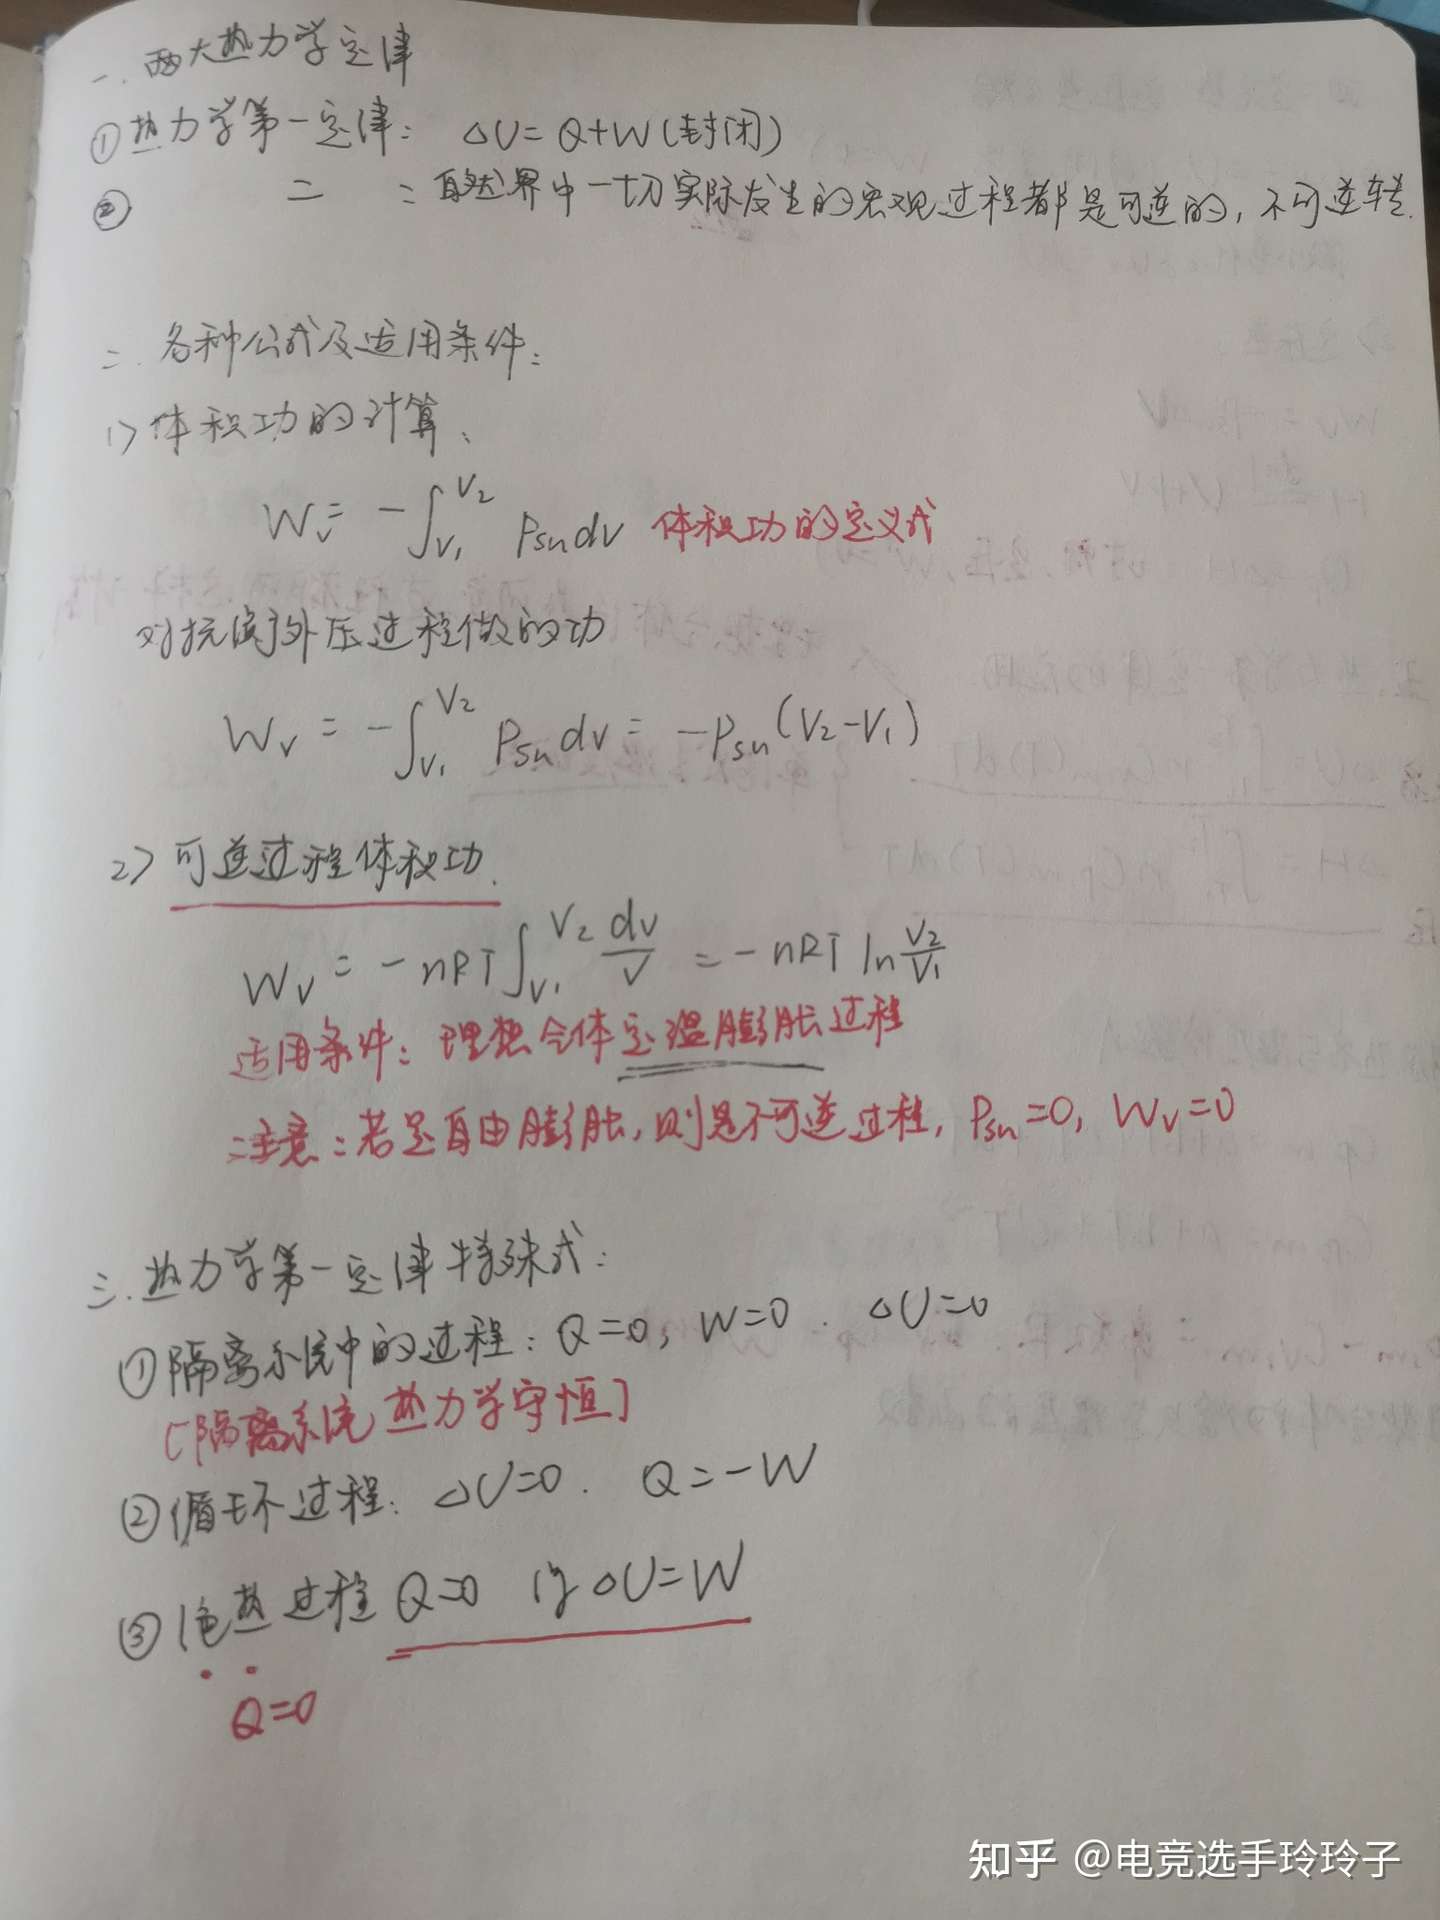 一. 两大热力学定律
①热力学第一定律: △U=Q+W(封闭)
② 二 : 自然界中一切实际发生的宏观过程都是可逆的, 不可逆转.
二. 各种公式及适用条件:
1> 体积功的计算、
Wv= -∫V₁V₂ Psu dv 体积功的定义式
对抗恒外压过程做的功
Wv = -∫V₁V₂ Psu dv = -Psu (V₂-V₁)
2> 可逆过程体积功.
Wv = -nRT∫V₁V₂ dv/V = -nRT ln V₂/V₁
适用条件: 理想气体定温膨胀过程
注意: 若是自由膨胀, 则是不可逆过程, Psu=0, Wv=0
三. 热力学第一定律特殊式:
①隔离系统中的过程: Q=0, W=0. △U=0
[隔离系统热力学守恒]
②循环过程: △U=0. Q=-W
③绝热过程 Q=0 则△U=W
Q=0
知乎 @电竞选手玲玲子